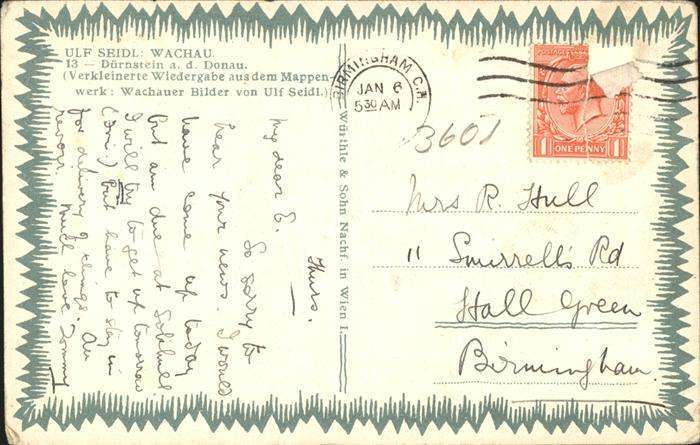 ULF SEIDL: WACHAU.
13 — Dürnstein a. d. Donau.
(Verkleinerte Wiedergabe aus dem Mappen-
werk: Wachauer Bilder von Ulf Seidl.)
Würthle & Sohn Nachf. in Wien I.
BIRMINGHAM. C.H.
JAN 6
5 30 AM
POSTAGE
1 ONE PENNY 1
3601
Mrs R. Hull
11 Smirrells Rd
Hall Green
Birmingham.
Thurs.
My dear E.
So sorry to
hear your news. I would
have come up today
but am due at Solihull
I will try to get up tomorrow
(Fri) but have to stay in
for delivery of things. Au
revoir. Much love Tommy